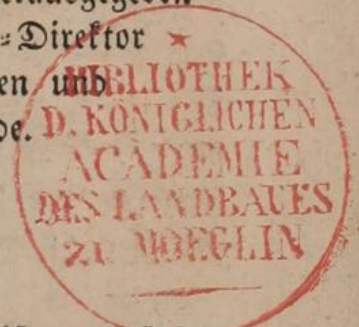 -Direktor
en und
de.
BIBLIOTHEK
D. KÖNIGLICHEN
ACADEMIE
DES LANDBAUES
ZU MOEGLIN